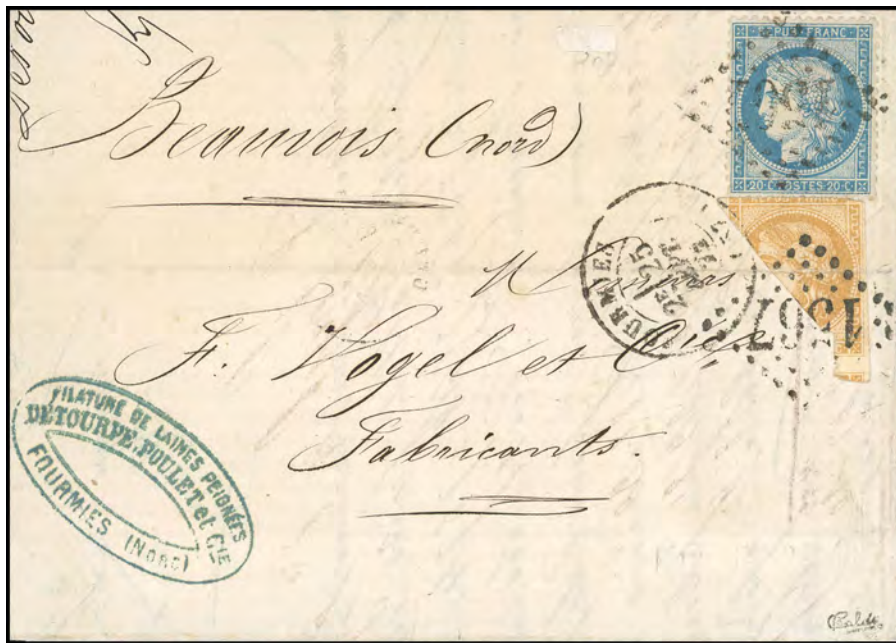 REPUB. FRANC.
20·C·POSTES 20·C·
Beauvois (nord)
FOURMIES
2E
25
SEPT.
Messieurs
1567
F. Vogel et Cie
Fabricants.
FILATURE DE LAINES PEIGNÉES
DETOURPE, POULET et CIE
FOURMIES (NORD)
Calves